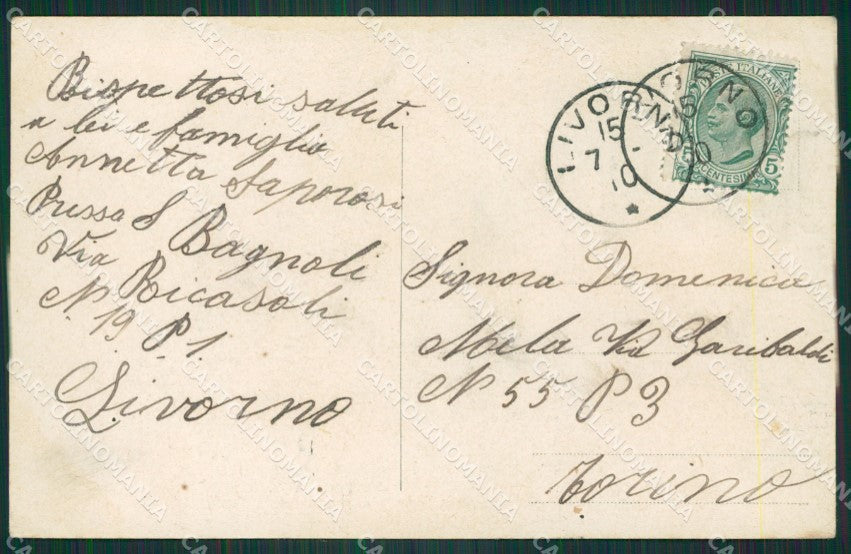 Rispettosi saluti
a lei e famiglia
Annetta Saporosi
Presso S Bagnoli
Via Ricasoli
N. 19 P. 1
Livorno
LIVORNO
15
7 -
10
POSTE ITALIANE
CENTESIMI 5
Signora Domenica
Mela Via Garibaldi
N 55 P 3
Torino
CARTOLINOMANIA